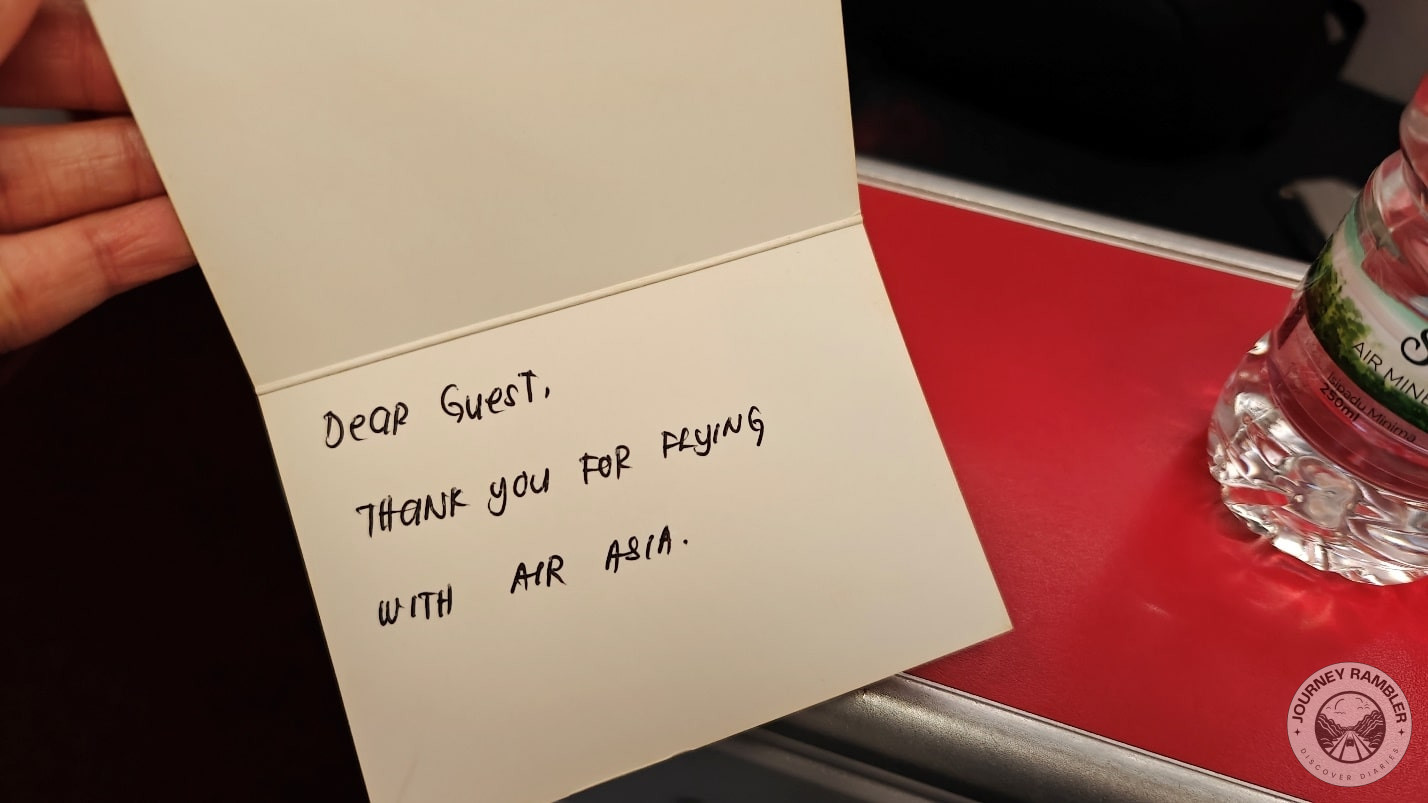 Dear Guest,
THANK YOU FOR FLYING
WITH AIR ASIA.
AIR MINE
Isipadu Minima
250ml
JOURNEY RAMBLER
DISCOVER DIARIES